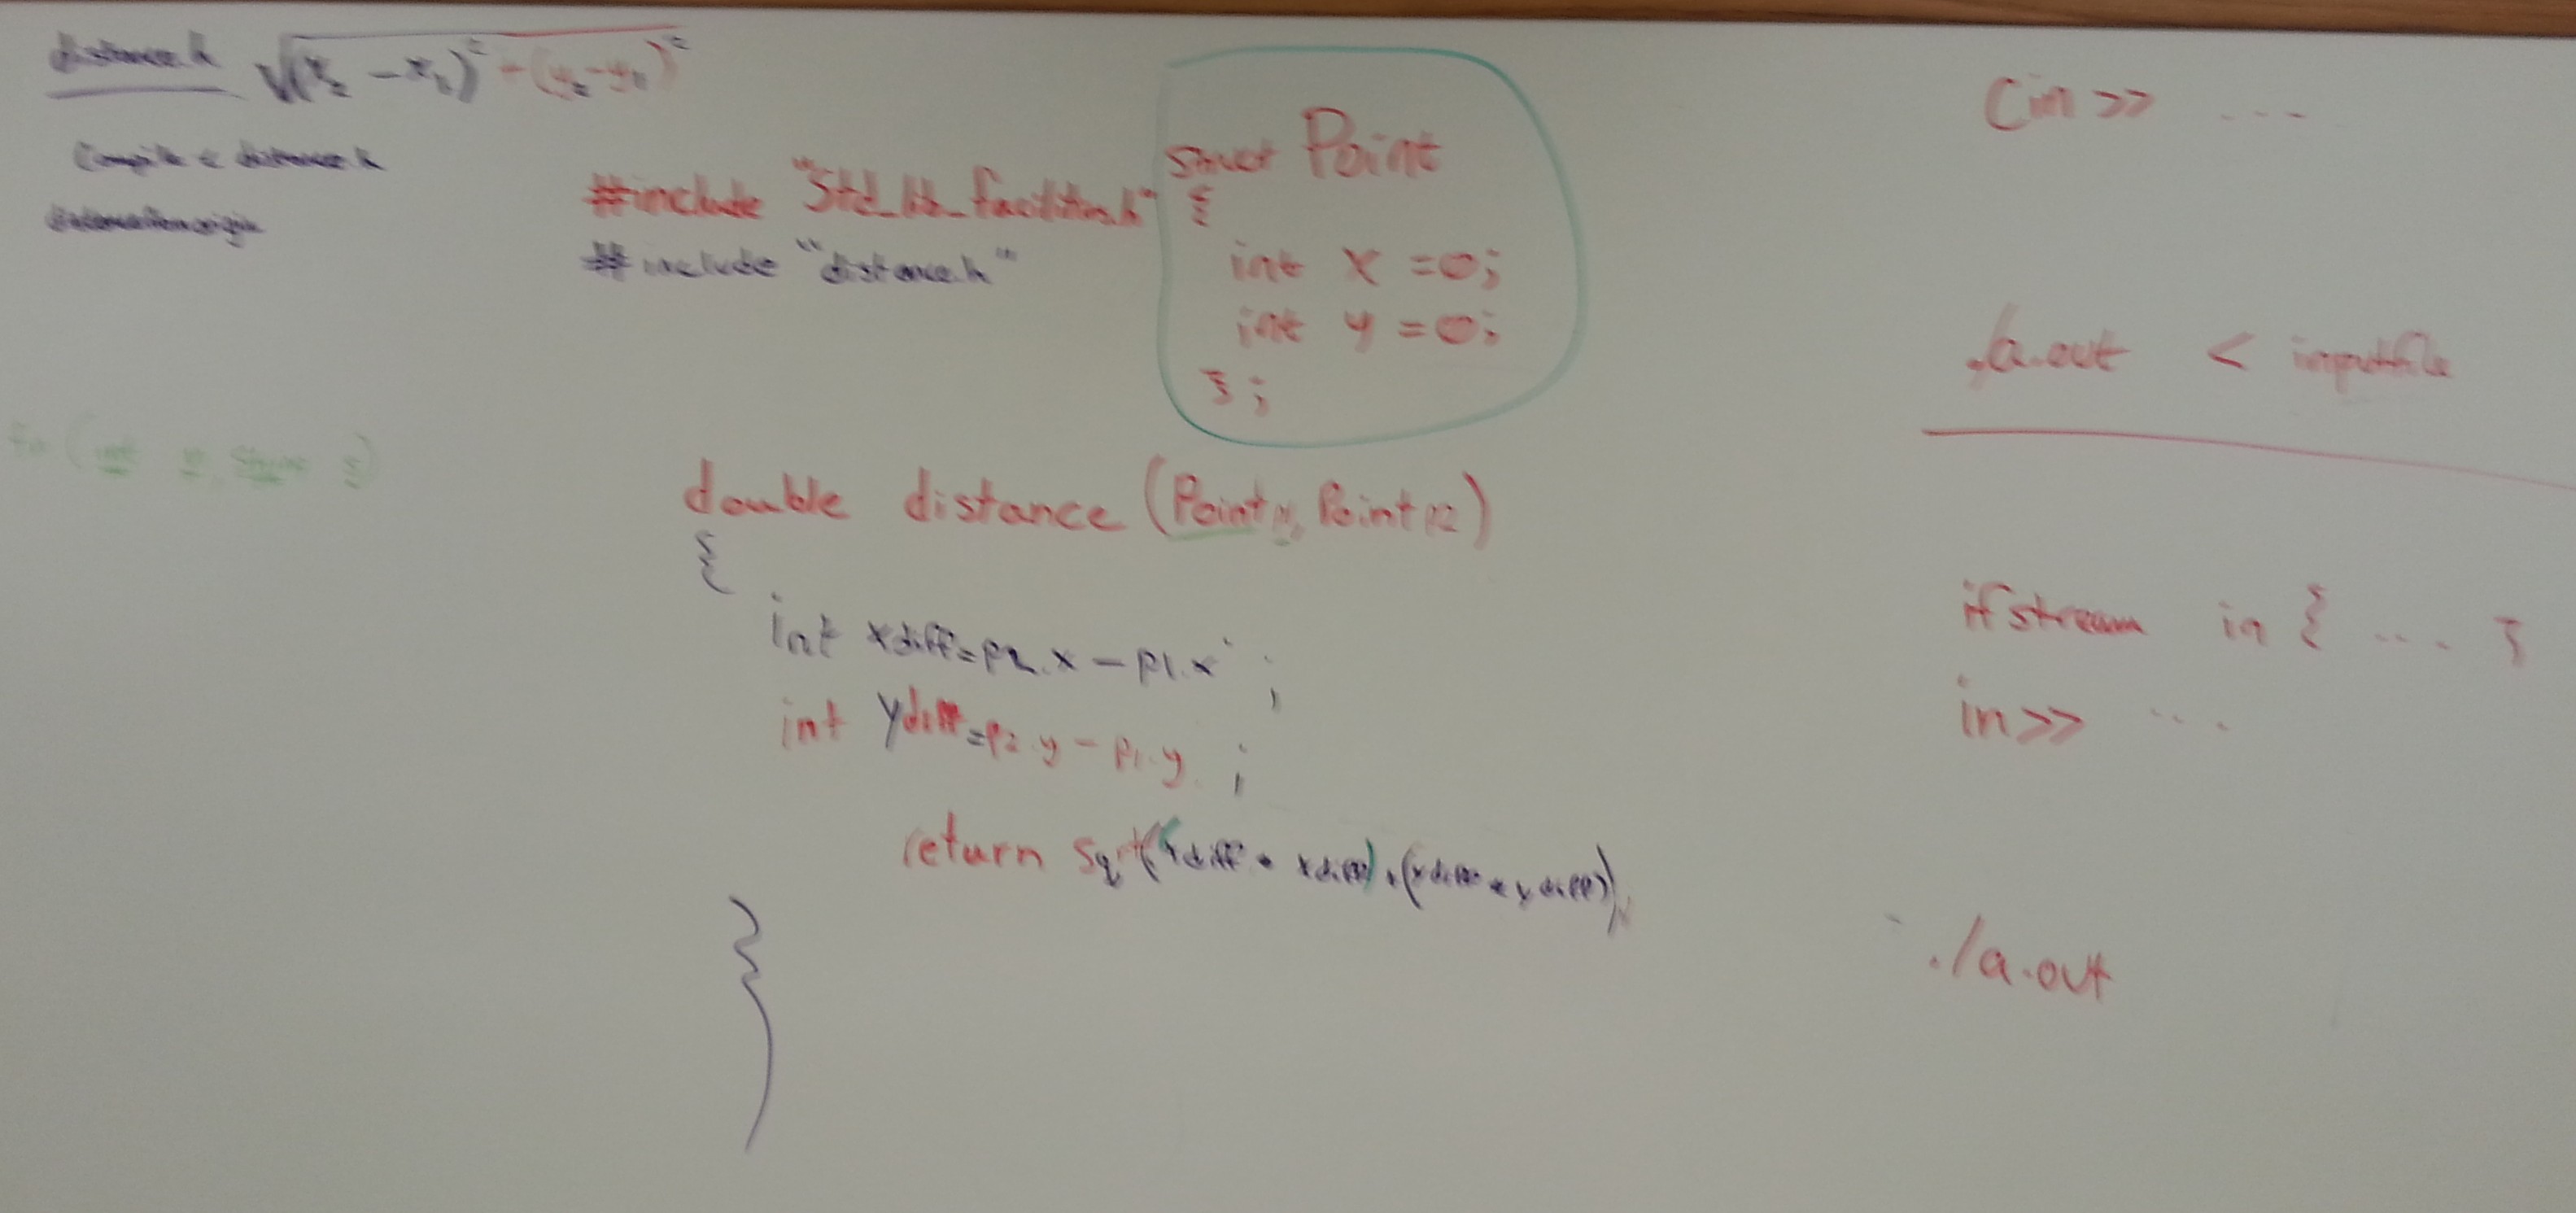 distance.h √(x₂ - x₁)² - (y₂-y₁)²
Compile < distance.h
#include "Std_lib_facilities.h"
#include "distance.h"
struct Point
{
int x =0;
int y =0;
};
fn (int
double distance (Point p1, Point p2)
{
int xdiff=p2.x - p1.x ;
int ydiff=p2.y - p1.y ;
return sqrt(
}
Cin >> ...
./a.out < inputfile
ifstream in { ... }
in >> ...
./a.out